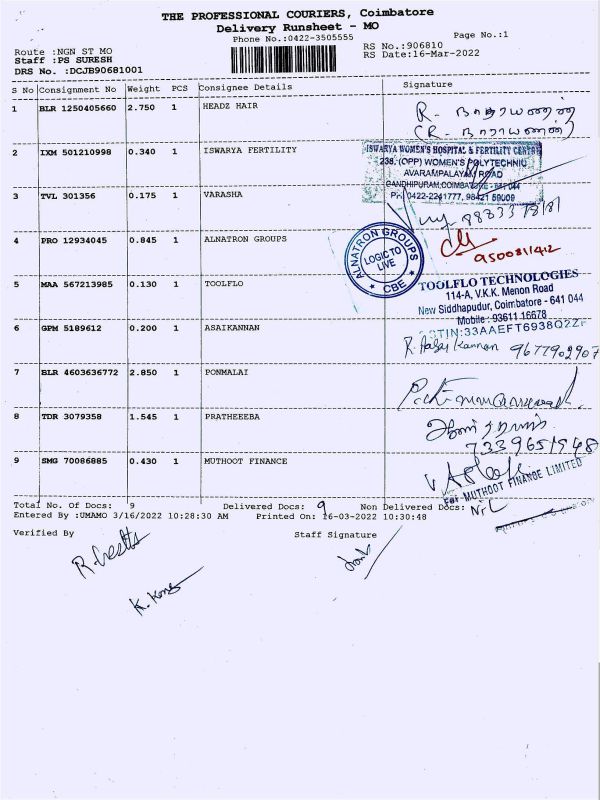 THE PROFESSIONAL COURIERS, Coimbatore
Delivery Runsheet - MO
Phone No.:0422-3505555
Page No.:1
Route :NGN ST MO
RS No.:906810
Staff :PS SURESH
RS Date:16-Mar-2022
DRS No. :DCJB90681001
S No Consignment No Weight PCS Consignee Details Signature
1 BLR 1250405660 2.750 1 HEADZ HAIR
R. நாராயணன்
(R. நாராயணன்)
2 IXM 501210998 0.340 1 ISWARYA FERTILITY
ISWARYA WOMEN'S HOSPITAL & FERTILITY CENTRE
238, (OPP) WOMEN'S POLYTECHNIC
AVARAMPALAYAM ROAD
GANDHIPURAM, COIMBATORE - 641 044
Ph: 0422-2241777, 98421 59009
3 TVL 301356 0.175 1 VARASHA
4 PRO 12934045 0.845 1 ALNATRON GROUPS
ALNATRON GROUPS
LOGIC TO
LIVE
CBE
9500311412
5 MAA 567213985 0.130 1 TOOLFLO
TOOLFLO TECHNOLOGIES
114-A, V.K.K. Menon Road
New Siddhapudur, Coimbatore - 641 044
Mobile : 93611 16678
GSTIN:33AAEFT6938Q2ZF
6 GPM 5189612 0.200 1 ASAIKANNAN
R. Aasai Kannan 9677902907
7 BLR 4603636772 2.850 1 PONMALAI
8 TDR 3079358 1.545 1 PRATHEEEBA
7339651948
9 SMG 70086885 0.430 1 MUTHOOT FINANCE
For MUTHOOT FINANCE LIMITED
Total No. Of Docs: 9 Delivered Docs: 9 Non Delivered Docs: NiL
Entered By :UMAMO 3/16/2022 10:28:30 AM Printed On: 16-03-2022 10:30:48
Verified By Staff Signature